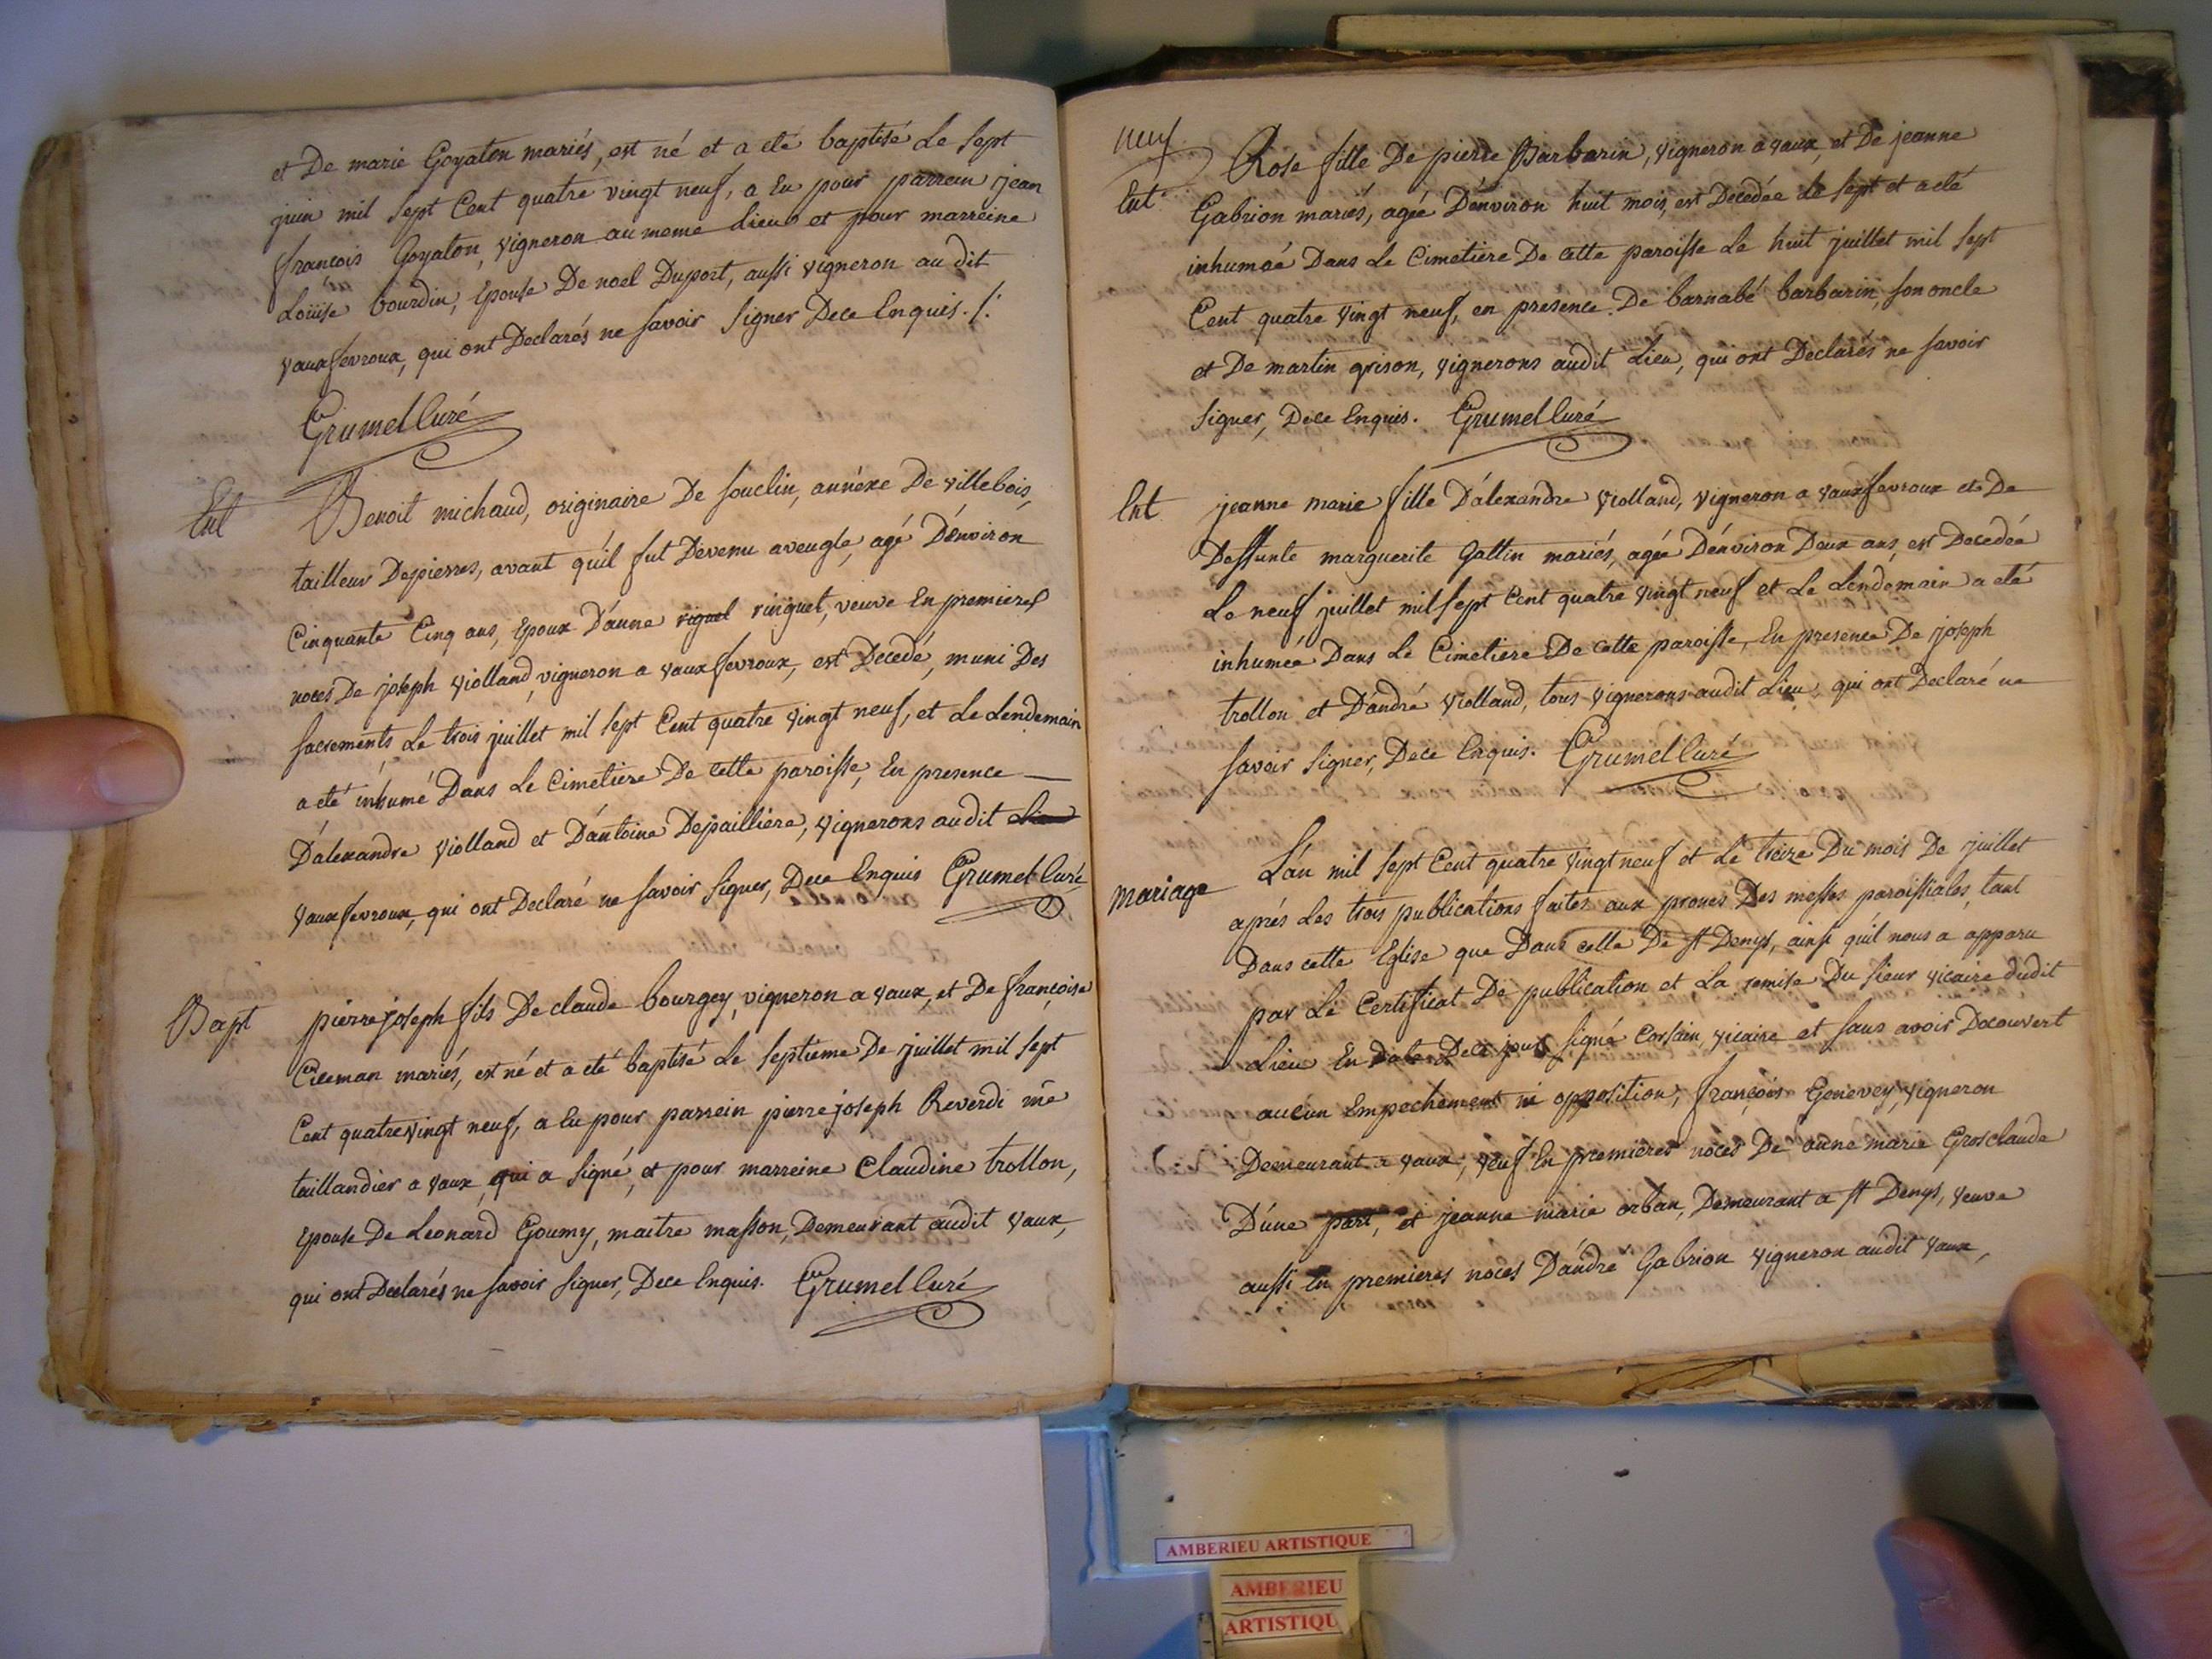 et De marie Goyaton mariés, est né et a eté baptisé Le sept
juin mil sept Cent quatre vingt neuf, a Eu pour parrein jean
françois Goyaton, vigneron au meme Lieu et pour marreine
Loüise bourdin, Epouse De noel Duport, aussi vigneron au dit
vauxfevroux, qui ont Declarés ne savoir signer Dece Enquis. /:
Grumel Curé
Ent
Benoit michaud, originaire De souclin, annéxe De villebois,
tailleur Depierres, avant qu'il fut Devenu aveugle, agé D'énviron
Cinquante Cinq ans, Epoux D'anne riguel ringuet, veuve En premieres
noces De joseph violland, vigneron a vauxfevroux, est Decedé, muni Des
sacrements, Le trois juillet mil sept Cent quatre vingt neuf, et Le Lendemain
a eté inhumé Dans Le Cimetiere De cette paroisse, En presence
D'alexandre violland et D'antoine Depailliere, vignerons audit Lieu
vauxfevroux, qui ont Declaré ne savoir signer, Dece Enquis Grumel Curé
Bapt
pierre joseph fils De claude bourgey, vigneron a vaux, et De françoise
mariés, est né et a eté baptisé Le septieme De juillet mil sept
Cent quatrevingt neuf, a Eu pour parrein pierre joseph Reverdi me
taillandier a vaux, qui a signé, et pour marreine Claudine trollon,
Epouse De Leonard Goumy, maitre masson, Demeurant audit vaux,
qui ont Declarés ne savoir signer, Dece Enquis. Grumel Curé
neuf
Ent
Rose fille De pierre Barbarin, vigneron a vaux, et De jeanne
Gabrion mariés, agée D'énviron huit mois, est Decedée Le sept et a eté
inhumée Dans Le Cimetiere De cette paroisse Le huit juillet mil sept
Cent quatre vingt neuf, en presence De barnabé barbarin, son oncle
et De martin grison, vignerons audit Lieu, qui ont Declarés ne savoir
signer, Dece Enquis. Grumel Curé
Ent
jeanne marie fille D'alexandre violland, vigneron a vauxfevroux et De
Deffunte marguerite Gattin mariés, agée D'énviron Deux ans, est Decedée
Le neuf juillet mil sept Cent quatre vingt neuf et Le Lendemain a eté
inhumée Dans Le Cimetiere De cette paroisse, En presence De joseph
trollon et D'andré violland, tous vignerons audit Lieu, qui ont Declaré ne
savoir signer, Dece Enquis. Grumel Curé
mariage
L'an mil sept Cent quatre vingt neuf et Le treize Du mois De juillet
aprés Les trois publications faites aux prones Des messes paroissiales, tant
Dans cette Eglise que Dans celle De st Denys, ainsi qu'il nous a apparu
par Le Certificat De publication et La remise Du sieur vicaire dudit
Lieu En Date Dece jour signé Corsain, vicaire et sans avoir Decouvert
aucun Empechement ni opposition, françois Genevey, vigneron
Demeurant a vaux, veuf En premieres noces De anne marie Grosclaude
D'une part, et jeanne marie orban, Demeurant a st Denys, veuve
aussi En premieres noces D'andré Gabrion vigneron audit vaux,
AMBERIEU ARTISTIQUE
AMBERIEU
ARTISTIQU